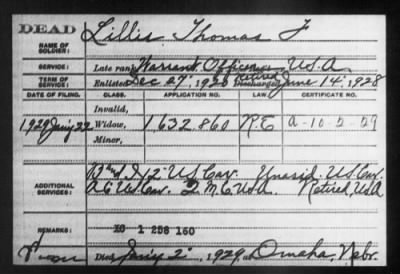 DEAD Lillis Thomas F
NAME OF SOLDIER:
SERVICE: Late rank Warrant Officer U.S.A
TERM OF SERVICE: Enlisted Dec 27, 1928 Retired Discharged June 14, 1928
DATE OF FILING. CLASS. APPLICATION NO. LAW. CERTIFICATE NO.
Invalid,
1929 Jan'y 22 Widow, 1632,860 R.E A-10-2-29
Minor,
ADDITIONAL SERVICES: Band, 12" U.S. Cav. Unasgd. U.S. Cav.
A 6" U.S. Cav. Q.M.C. U.S.A. Retired, U.S.A
REMARKS: XC 1 256 160
Died Jan'y 2", 1929, at Omaha, Nebr.